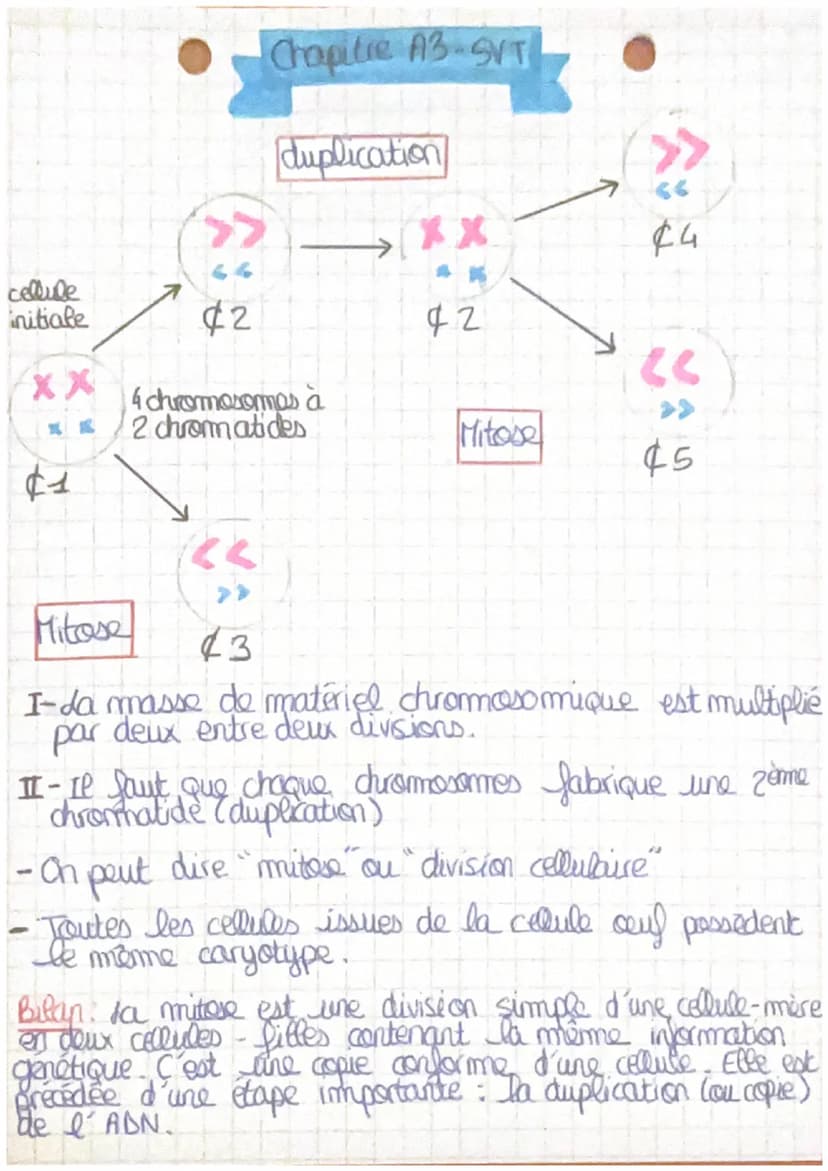 Chapitre A3 - SVT
duplication
¢4
cellule
initiale
¢2
¢2
4 chromosomes à
2 chromatides
Mitose
¢5
¢1
Mitose
¢3
I- La masse de matériel chromosomique est multiplié
par deux entre deux divsions.
II - Il faut que chaque chromosomes fabrique une 2ème
chromatide (duplication)
- On peut dire "mitose" ou "division cellulaire"
- Toutes les cellules issues de la cellule œuf possèdent
le même caryotype.
Bilan: la mitose est une division simple d'une cellule-mère
en deux cellules - filles contenant la même information
génétique. C'est une copie conforme d'une cellule. Elle est
précédée d'une étape importante : la duplication (ou copie)
de l'ADN.